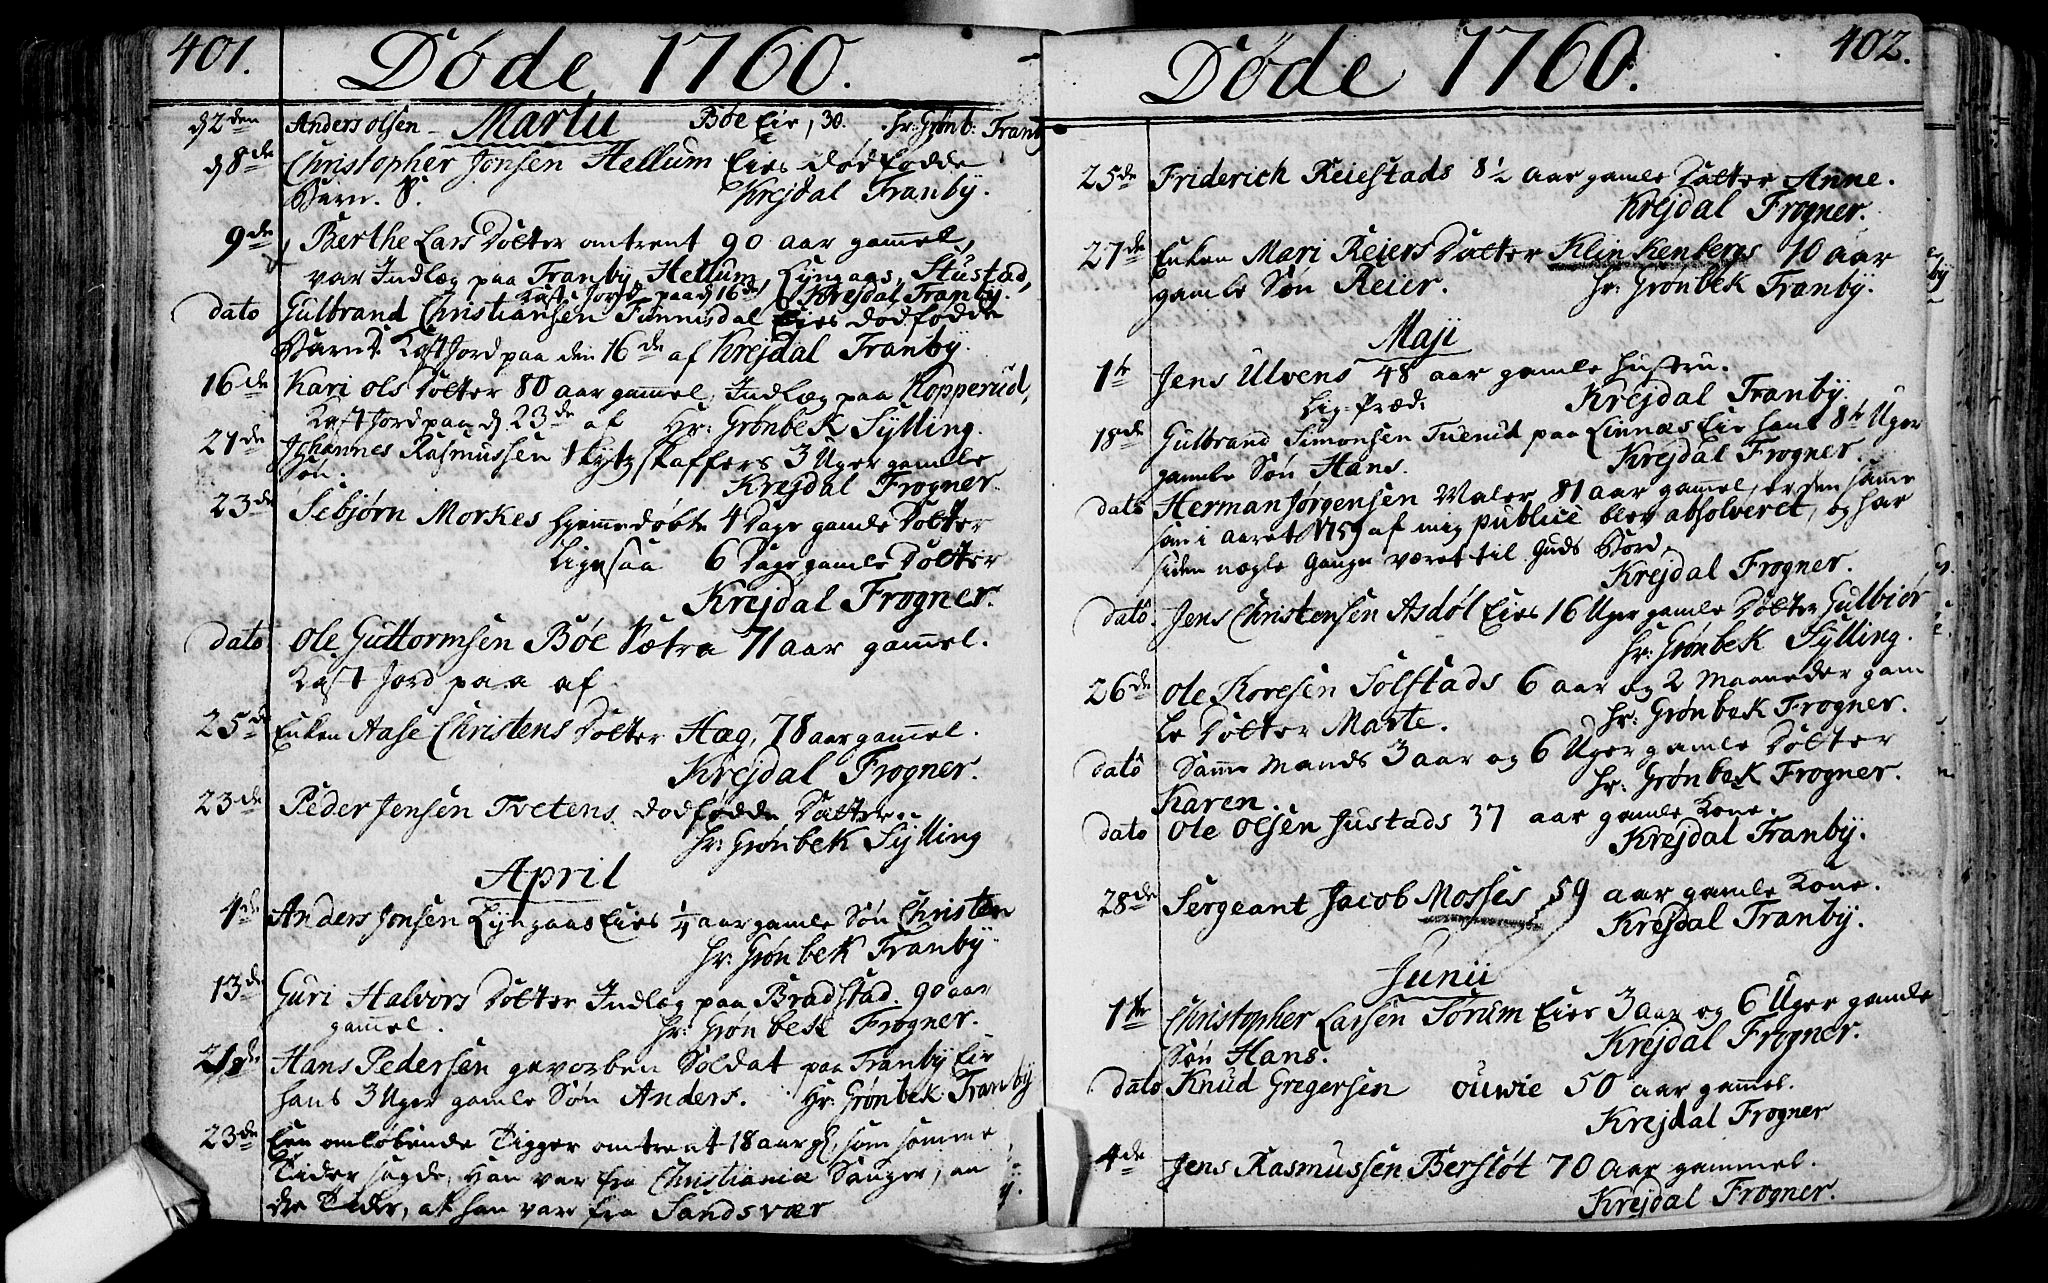 401. Døde 1760.
d 2den Anders olsen - Martii Bøe Eie, 30. Hr: Grønb: Tranb
d 8de Christopher Jonsen Hellum Eies dødfødde
Barn. S. Krejdal Tranby.
9de Berthe Lars Dotter omtrent 90 aar gammel,
var Indlæg paa Tranby, Hellum, Lyngaas, Stustad,
Kast Jord paa d 16de, Krejdal Tranby.
dato Gulbrand Christiansen Eies dødfødde
Barn Kast Jord paa den 16de af Krejdal Tranby.
16de Kari ols Dotter 80 aar gammel, Indlæg paa Kopperud,
Kast Jord paa d 23de af Hr: Grønbek Sylling.
21de Johannes Rasmussen Skytzskaffers 3 Uger gamle
Søn. Krejdal Frogner.
23de Sebjørn Morkes hjemmedøbte 4 Dage gamle Dotter
Ligesaa 6 Dage gamle Dotter
Krejdal Frogner.
dato Ole Guttormsen Bøe Sætra 71 aar gammel.
Kast Jord paa af
25de Enken Aase Christens Dotter Hæg, 78 aar gammel.
Krejdal Frogner.
23de Peder Jensen Tvetens dødfødde Datter.
Hr: Grønbek Sylling
April
4de Anders Jonsen Lyngaas Eies 1/4 aar gamle Søn Christen
Hr: Grønbek Tranby.
13de Guri Halvors Dotter Indlæg paa Bradstad. 90 aar
gammel. Hr: Grønbek Frogner.
21de Hans Pedersen gevorben Soldat paa Tranby Eie
hans 3 Uger gamle Søn Anders. Hr: Grønbek Tranby
23de Een omløbende Tigger omtrent 18 aar gl, som somme
Tider sagde, Han var fra Christiania Sanger, an
dre Tider, at han var fra Sandsvær
Døde 1760. 402.
25de Friderich Reiestads 8 1/2 aar gamle Datter Anne.
Krejdal Frogner.
27de Enken Mari Reiers Datter Klinkenbergs 10 aar
gamle Søn Reier. Hr: Grønbek Tranby.
Maji
1te Jens Ulvens 48 aar gamle Hustru.
Lig-Præd: Krejdal Tranby.
18de Gulbrand Simonsen Tuerud paa Linnæs Eie hans 8te Uger
gamle Søn Hans. Krejdal Frogner.
dato Herman Jørgensen Maler 81 aar gammel, er den samme
som i aaret 1759 af mig publice blev absolveret, og har
siden nogle Gange været til Guds Bord,
Krejdal Frogner.
dato. Jens Christensen Asdøl Eies 16 Uger gamle Dotter Gulbiør
Hr: Grønbek Sylling.
26de Ole Koresen Solstads 6 aar og 2 Maaneder gam
le Dotter Marte. Hr: Grønbek Frogner.
dato Samme Mands 3 aar og 6 Uger gamle Dotter
Karen. Hr: Grønbek Frogner.
dato Ole Olsen Justads 37 aar gamle Kone.
Krejdal Tranby.
28de Sergeant Jacob Mosses 59 aar gamle Kone.
Krejdal Tranby.
Junii
1te Christopher Larsen Sorum Eies 3 aar og 6 Uger gamle
Søn Hans. Krejdal Frogner.
dato Knud Gregersen ouwie 50 aar gammel.
Krejdal Frogner
4de Jens Rasmussen Berstøt 70 aar gammel.
Krejdal Frogner.